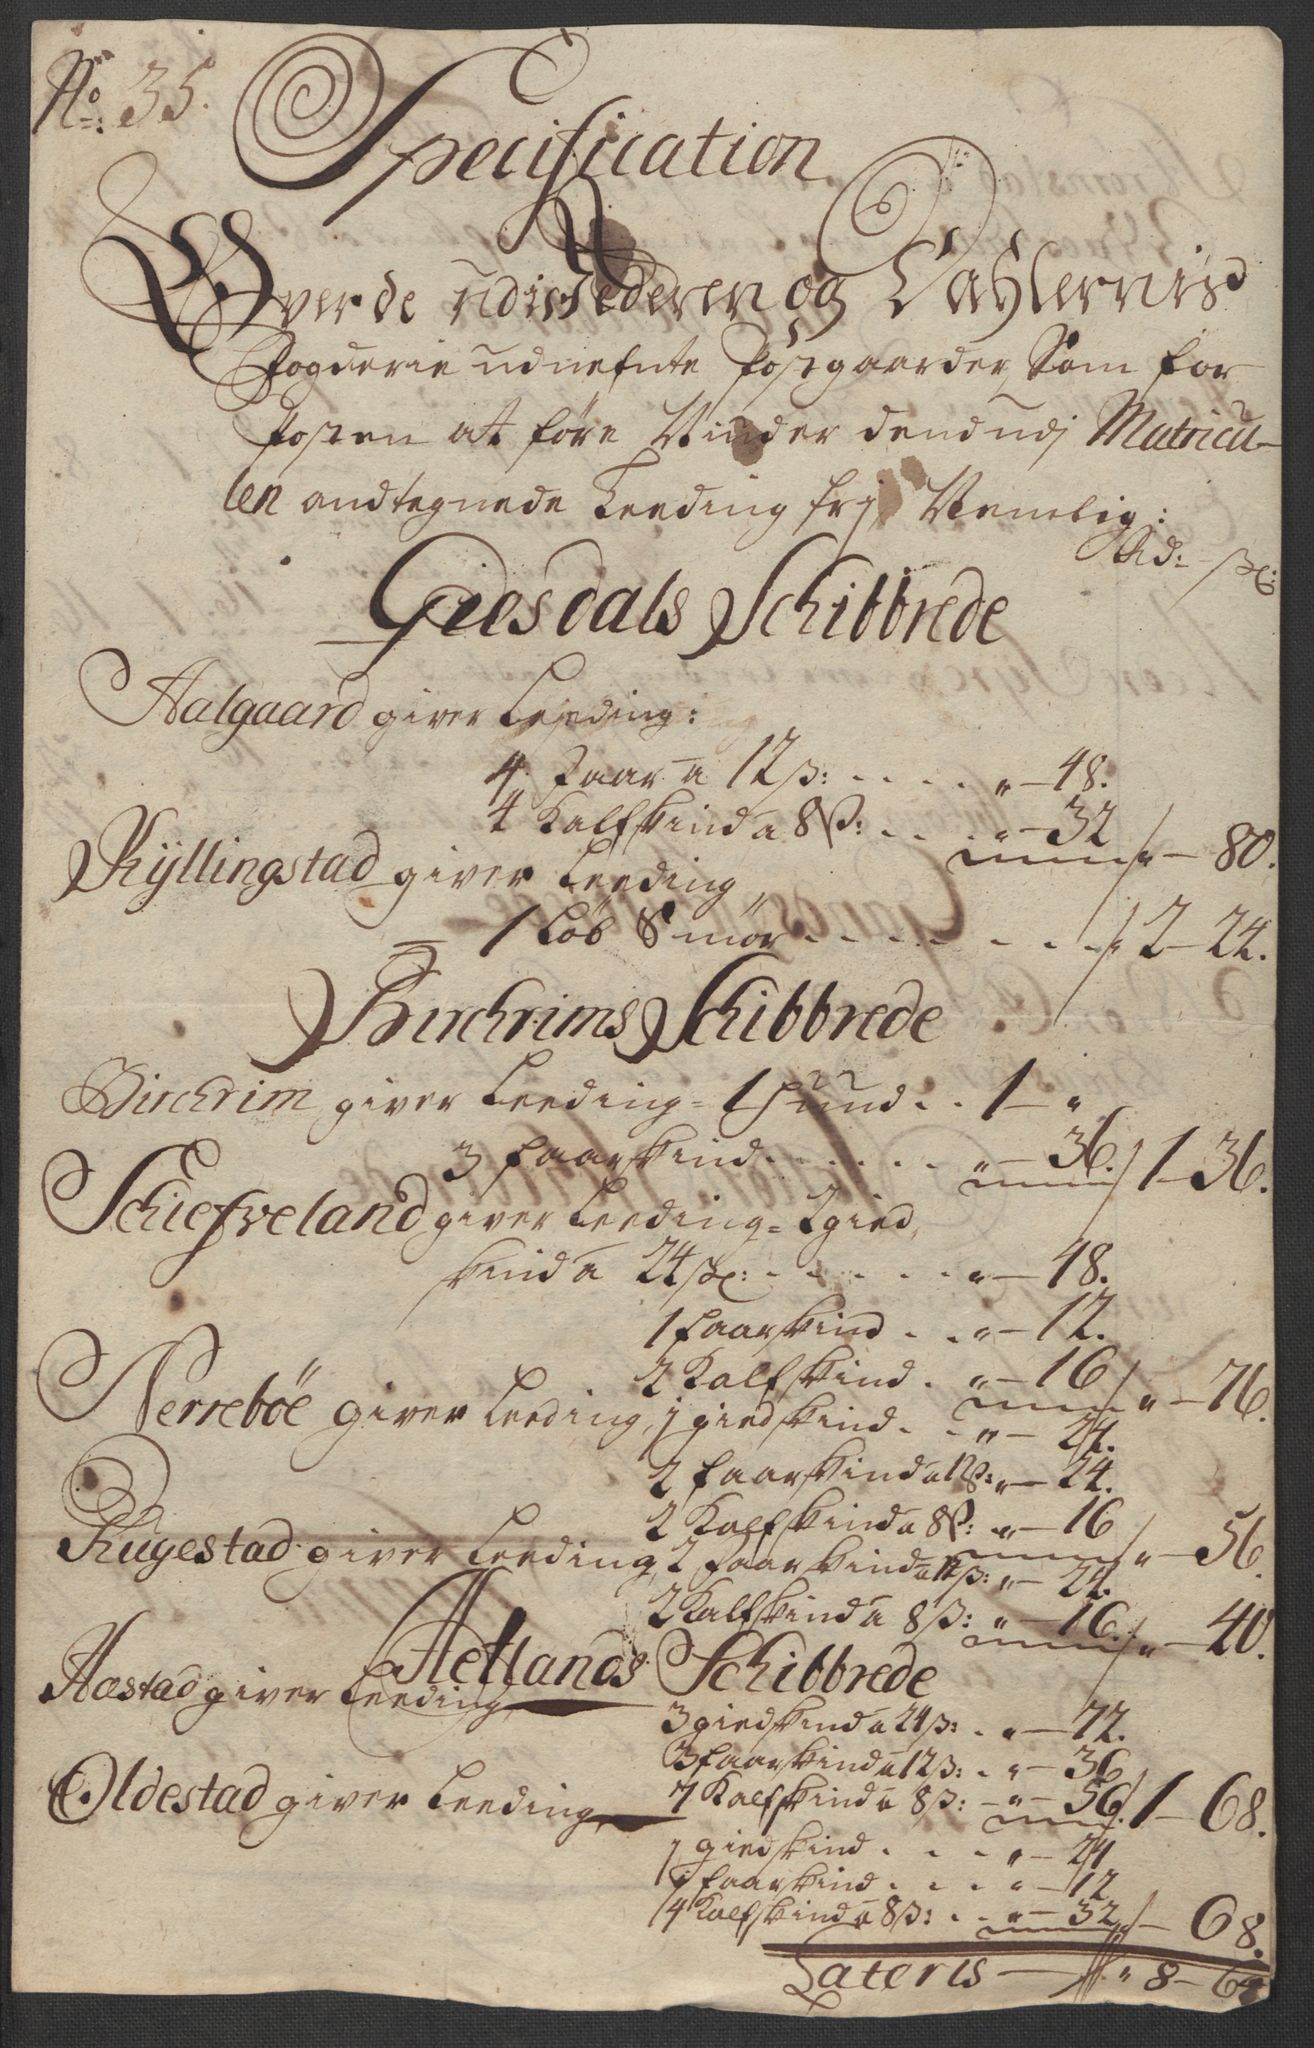 No: 35.
Specification
Over de udi Jederen og Dahlernis
Fogderie udnefnte Postgaarder, Som for
Posten at føre Niuder dend udj Matricu-
len andtegnede Leeding frj, Nemlig:
Rd: ß:
Giesdals Schibbrede
Aalgaard giver Leeding:
4 Faar a 12 ß: .... " — 48.
4 Kalfskind a 8 ß: ... " — 32 / " — 80.
Kyllingstad giver Leeding,
1 Løb Smør ........ / 2 — 24.
Birchrims Schibbrede
Birchrim giver Leeding = 1 Hund .. 1 — "
3 faarskind ...... " — 36. / 1 — 36.
Schiefveland giver Leeding = 2 gied
skind a 24 ß: ...... " — 48.
1 faarskind .. " — 12.
2 Kalfskind . " — 16 / " — 76.
Nerrebøe giver Leeding, 1 giedskind .. " — 24.
2 faarskind a 12 ß: " — 24.
2 Kalfskind a 8 ß: " — 16 / " — 56.
Rugestad giver Leeding, 2 Faarskind a 12 ß: " — 24.
2 Kalfskind a 8 ß: " — 16. / " — 40.
Hetlands Schibbrede
Aastad giver Leeding,
3 giedskind a 24 ß: . " — 72.
3 faarskind a 12 ß: . " — 36
7 Kalfskind a 8 ß: — " — 56. / 1 — 68.
Oldestad giver Leeding,
1 giedskind .... " — 24
1 faarskind .... " — 12
4 Kalfskind a 8 ß: .. " — 32 / — 68.
Lateris — " 8 — 64